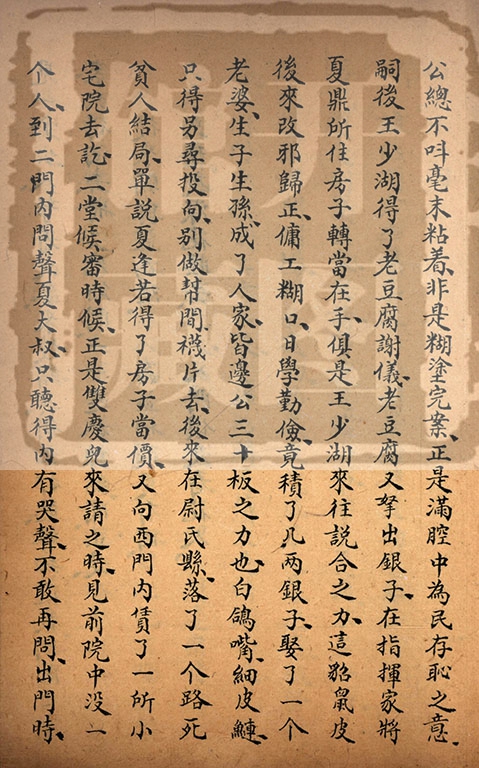 公總不呌毫末粘着、非是糊塗完案、正是滿腔中為民存恥之意、
嗣後王少湖得了老豆腐謝儀、老豆腐又拏出銀子、在指揮家將
夏鼎所住房子轉當在手、俱是王少湖來往說合之力、這貂鼠皮
後來改邪歸正、傭工糊口、日學勤儉、竟積了几两銀子、娶了一个
老婆、生子生孫、成了人家、皆邊公三十板之力也、白鴿嘴、細皮鰱、
只得另尋投向、别做幫閒𥿄片去、後來在尉氏縣、落了一个路死
貧人結局、單說夏逢若得了房子當價、又向西門內賃了一所小
宅院去訖、二堂候審時候、正是雙慶兒來請之時、見前院中没一
个人、到二門內問聲夏大叔、只聽得內有哭聲、不敢再問、出門時、